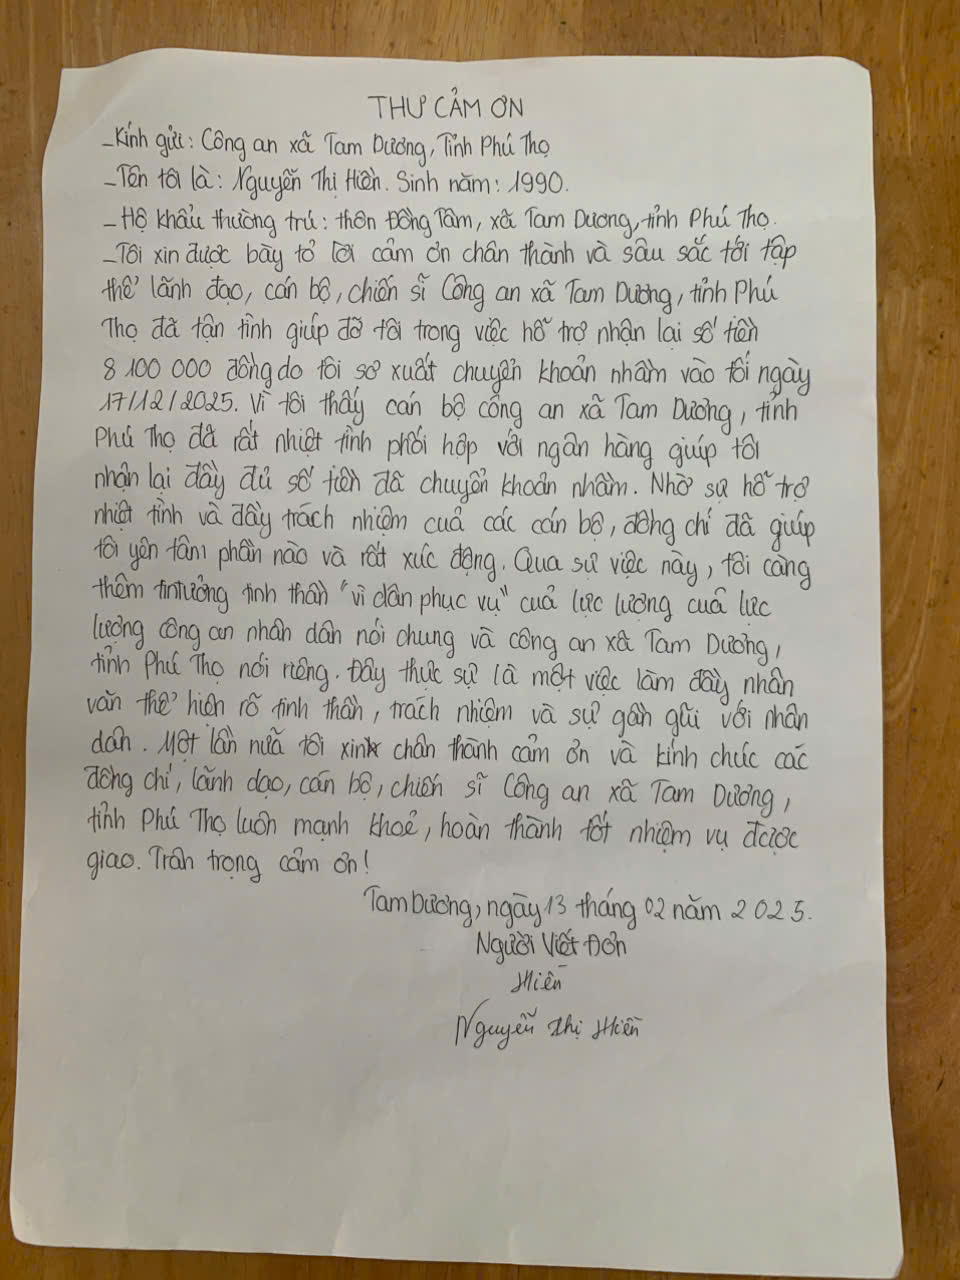 THƯ CẢM ƠN
-Kính gửi: Công an xã Tam Dương, Tỉnh Phú Thọ
-Tên tôi là: Nguyễn Thị Hiền. Sinh năm: 1990.
-Hộ khẩu thường trú: thôn Đồng Tâm, xã Tam Dương, tỉnh Phú Thọ.
-Tôi xin được bày tỏ lời cảm ơn chân thành và sâu sắc tới tập
thể lãnh đạo, cán bộ, chiến sĩ Công an xã Tam Dương, tỉnh Phú
Thọ đã tận tình giúp đỡ tôi trong việc hỗ trợ nhận lại số tiền
8 100 000 đồng do tôi sơ xuất chuyển khoản nhầm vào tối ngày
17/12/2025. Vì tôi thấy cán bộ công an xã Tam Dương, tỉnh
Phú Thọ đã rất nhiệt tình phối hợp với ngân hàng giúp tôi
nhận lại đầy đủ số tiền đã chuyển khoản nhầm. Nhờ sự hỗ trợ
nhiệt tình và đầy trách nhiệm cuả các cán bộ, đồng chí đã giúp
tôi yên tâm phần nào và rất xúc động. Qua sự việc này, tôi càng
thêm tin tưởng tinh thần "vì dân phục vụ" cuả lực lượng cuả lực
lượng công an nhân dân nói chung và công an xã Tam Dương,
tỉnh Phú Thọ nói riêng. Đây thực sự là một việc làm đầy nhân
văn thể hiện rõ tinh thần, trách nhiệm và sự gần gũi với nhân
dân. Một lần nưã tôi xin chân thành cảm ơn và kính chúc các
đồng chí, lãnh đạo, cán bộ, chiến sĩ Công an xã Tam Dương,
tỉnh Phú Thọ luôn mạnh khoẻ, hoàn thành tốt nhiệm vụ được
giao. Trân trọng cảm ơn!
Tam Dương, ngày 13 tháng 02 năm 2025.
Người Viết Đơn
Hiền
Nguyễn Thị Hiền